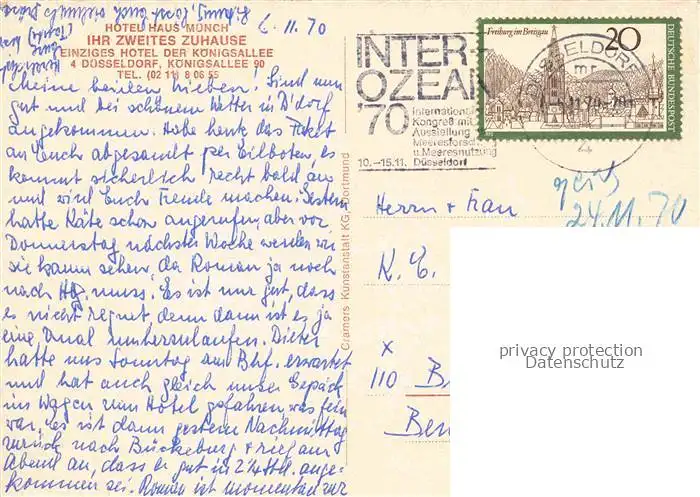 6.11.70
HOTEL HAUS MÜNCH
IHR ZWEITES ZUHAUSE
EINZIGES HOTEL DER KÖNIGSALLEE
4 DÜSSELDORF, KÖNIGSALLEE 90
TEL. (02 11) 8 06 55
Meine beiden Lieben! Sind nun
gut und bei schönem Wetter in D'dorf
angekommen. Habe heute das Paket
an Euch abgesandt per Eilboten, es
kommt sicherlich recht bald an
und wird Euch Freude machen. Gestern
hatte Käte schon angerufen, aber vor
Donnerstag nächster Woche werden wir
sie kaum sehen, da Roman ja noch
nach Hbg. muss. Es ist nur gut, dass
es nicht regnet denn dann ist es ja
eine Qual umherzulaufen. Dieter
hatte uns Sonntag am Bhf. erwartet
und hat auch gleich unser Gepäck
im Wagen zum Hotel gefahren, was fein
war, es ist dann gestern Nachmittag
zurück nach Bückeburg + rief am
Abend an, dass er gut in 2¼ Std. ange-
kommen sei. Roman ist momentan zur
Cramers Kunstanstalt KG, Dortmund
INTER-
OZEAN
'70
Internationaler
Kongreß mit
Ausstellung
Meeresforschung
u. Meeresnutzung
10.–15.11. Düsseldorf
Freiburg im Breisgau
20
DEUTSCHE BUNDESPOST
DÜSSELDORF
4
24.11.70
Herrn + Frau
K. E.
x
110 B
Ber
privacy protection
Datenschutz